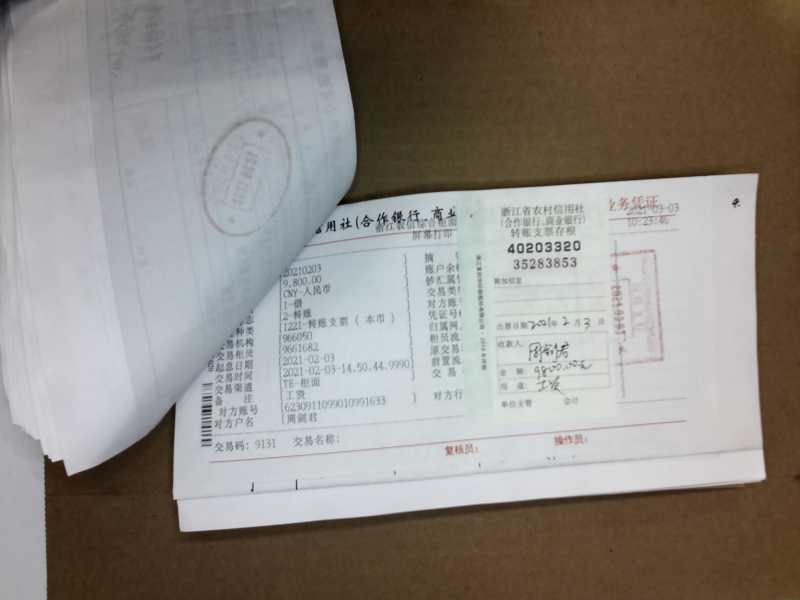 用社(合作银行、商业
业务凭证
浙江农信综合柜面
屏幕打印
2021-03-03
10:23:46
20210203
9,800.00
CNY-人民币
1-借
2-转账
种类 1221-转账支票（本币）
交易机构 966050
交易柜员 9661682
起息日期 2021-02-03
交易时间 2021-02-03-14.50.44.9990
交易渠道 TE-柜面
备 注 工资
对方账号 6230911099010991633
对方户名 周剑君
摘
账户余
钞汇属
交易类
对方账
凭证号
归属网
柜员流
原交易
前置流
交 易
对方行
交易码: 9131 交易名称:
复核员:
操作员:
浙江省农村信用社
(合作银行、商业银行)
转账支票存根
40203320
35283853
附加信息
出票日期 2021年 2 月 3 日
收款人: 周剑君
金 额 9800.00元
用 途 工资
单位主管 会计